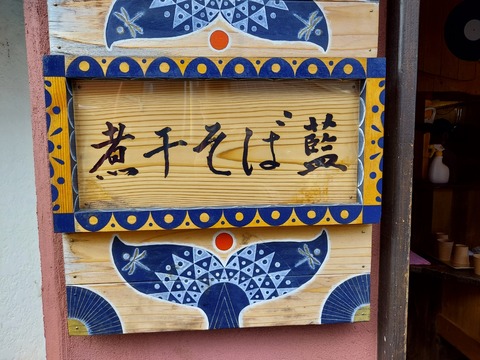 煮干そば藍